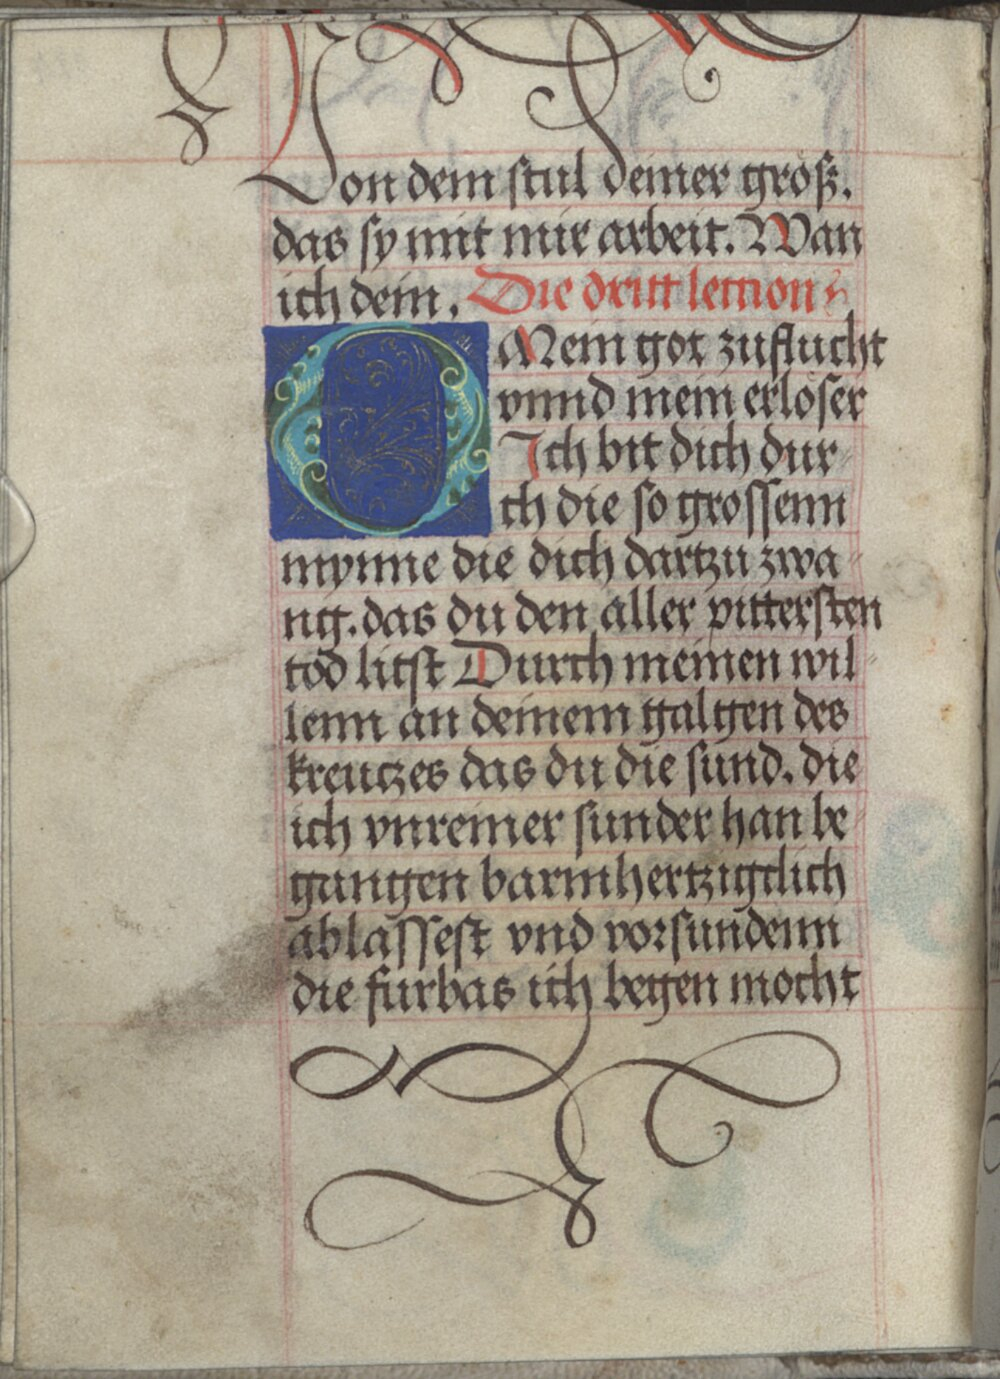 Von dem stul deiner größ.
das sy mit mir arbeit. Wan
ich dein. Die dritt lection
O Mein got zuflucht
vnnd mein erlöser
Ich bit dich dur
ch die so grossenn
mynne die dich dartzu zwa
ng. das du den aller pittersten
tod litst Durch meinen wil
lenn an deinem galgen des
kreutzes das du die sund. die
ich vnreiner sunder han be
gangen barmhertzigclich
ablassest vnd vorsundenn
die furbas ich begen mocht